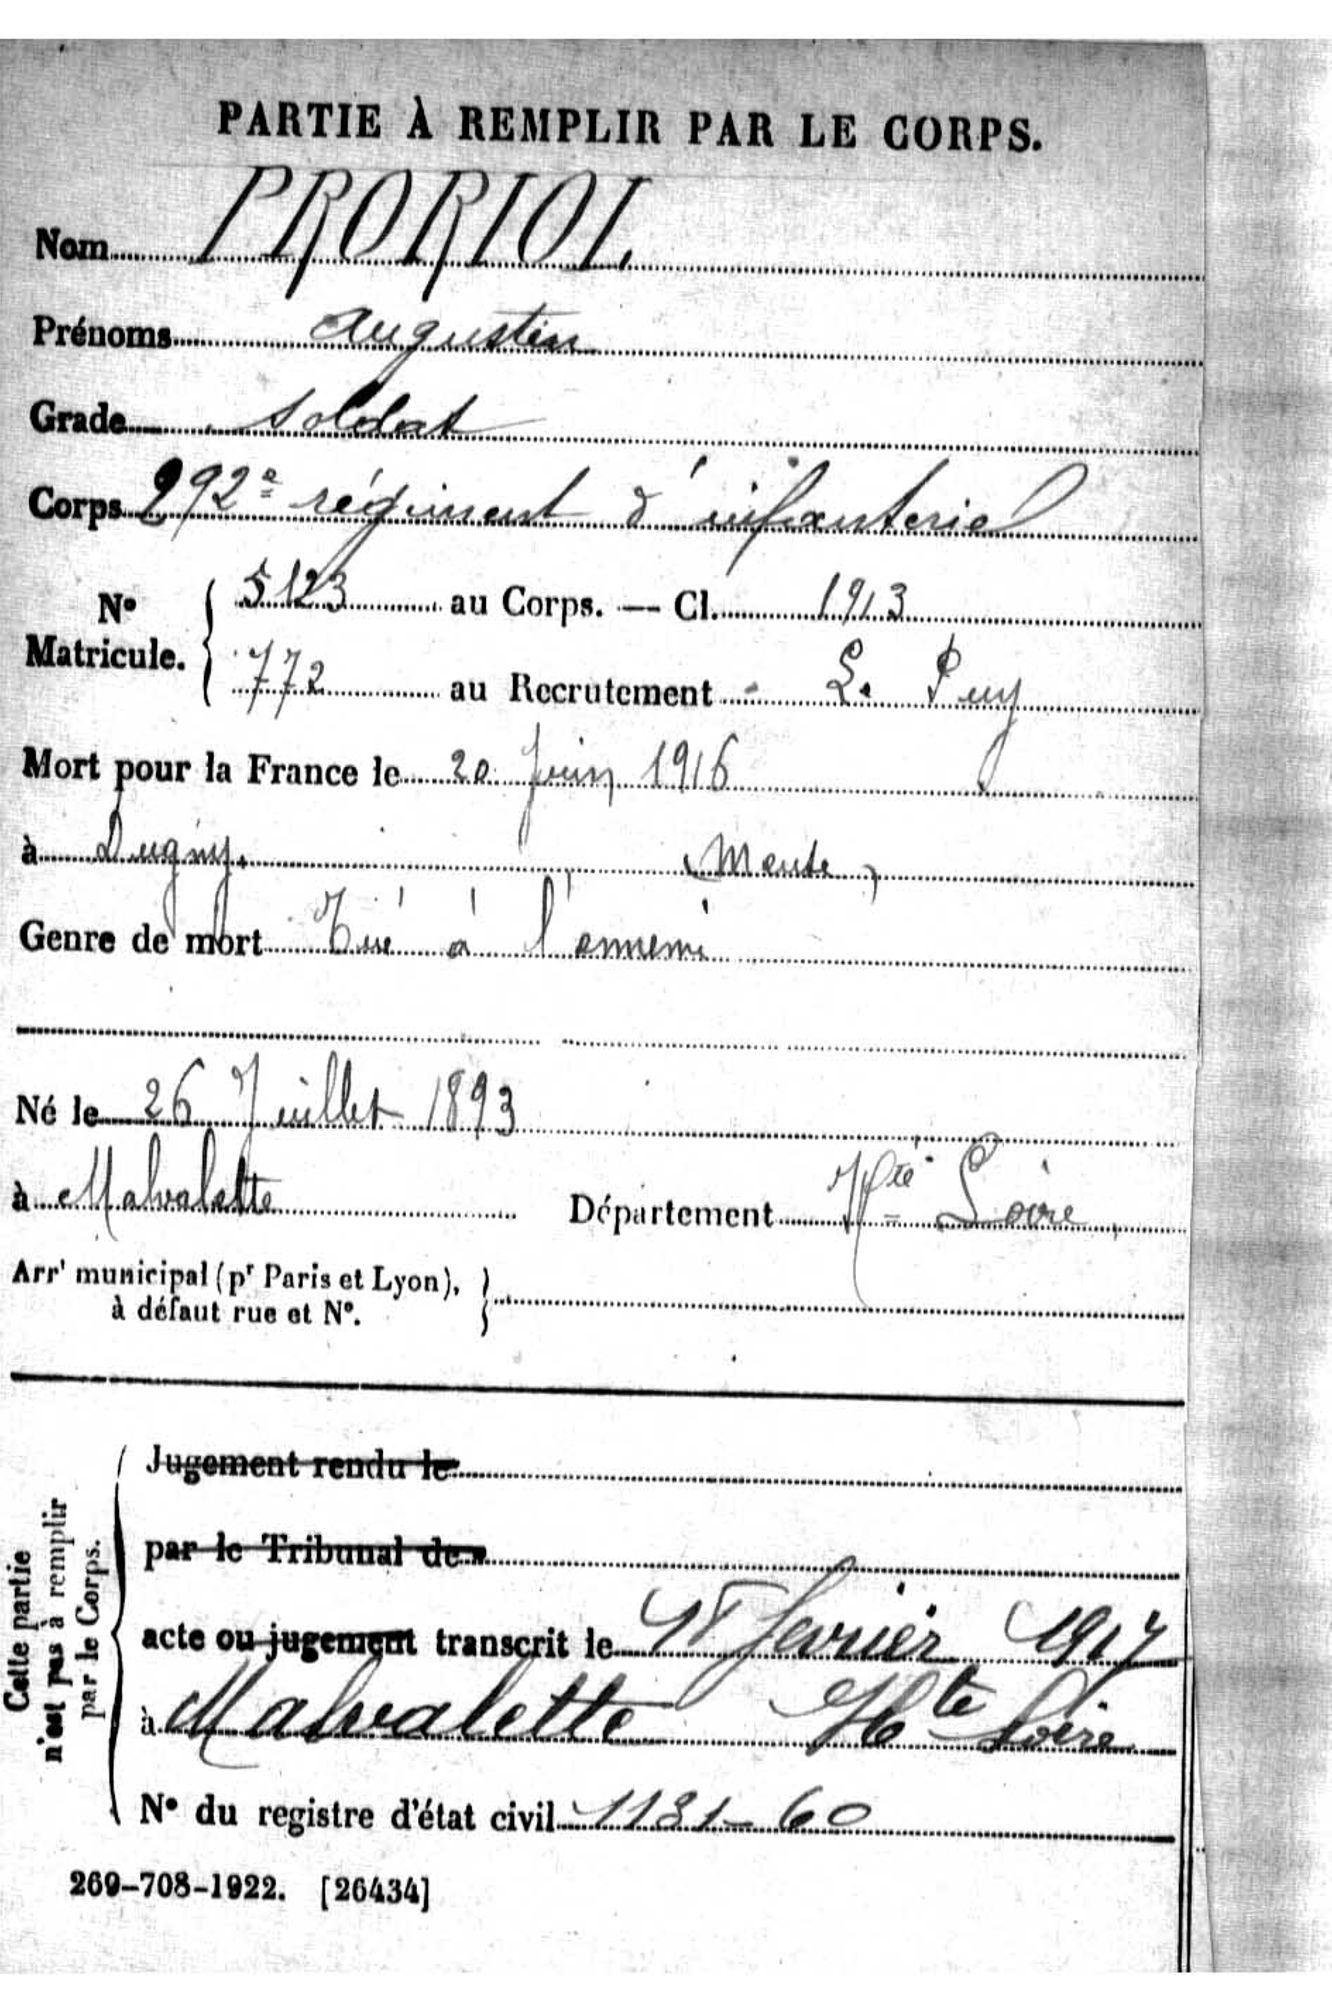 PARTIE À REMPLIR PAR LE CORPS.
Nom PRORIOL
Prénoms Augustin
Grade soldat
Corps 292e régiment d'infanterie
N° Matricule. 5123 au Corps. — Cl. 1913
772 au Recrutement Le Puy
Mort pour la France le 20 Juin 1916
à Dugny. (Meuse)
Genre de mort Tué à l'ennemi
Né le 26 Juillet 1893
à Malvalette Département Hte Loire
Arrt municipal (pr Paris et Lyon),
à défaut rue et N°.
Cette partie
n'est pas à remplir
par le Corps.
Jugement rendu le
par le Tribunal de
acte ou jugement transcrit le 18 février 1917
à Malvalette Hte Loire
N° du registre d'état civil 1131-60
269-708-1922. [26434]